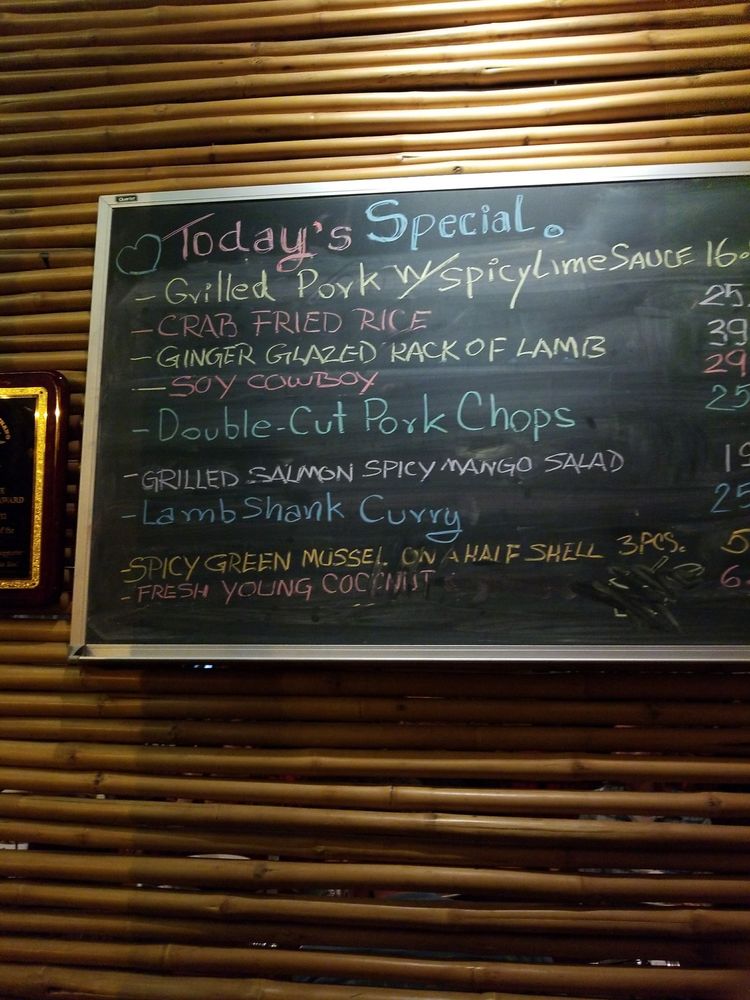 Quartet
Today's Special.
- Grilled Pork w/ Spicy Lime SAUCE 16.
- CRAB FRIED RICE 25
- GINGER GLAZED RACK OF LAMB 39
- SOY COWBOY 29
- Double-Cut Pork Chops 25
- GRILLED SALMON SPICY MANGO SALAD 19
- Lamb Shank Curry 25
- SPICY GREEN MUSSEL ON A HALF SHELL 3PCS. 5
- FRESH YOUNG COCONUT 6.